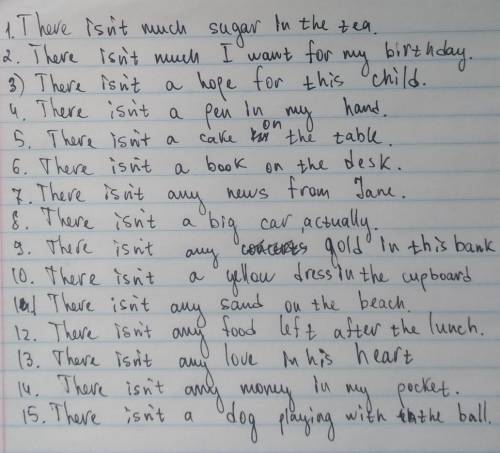 1. There isn't much sugar in the tea.
2. There isn't much I want for my birthday.
3) There isn't a hope for this child.
4. There isn't a pen in my hand.
5. There isn't a cake on the table.
6. There isn't a book on the desk.
7. There isn't any news from Jane.
8. There isn't a big car, actually.
9. There isn't any gold in this bank
10. There isn't a yellow dress in the cupboard
11) There isn't any sand on the beach.
12. There isn't any food left after the lunch.
13. There isn't any love in his heart
14. There isn't any money in my pocket.
15. There isn't a dog playing with the ball.